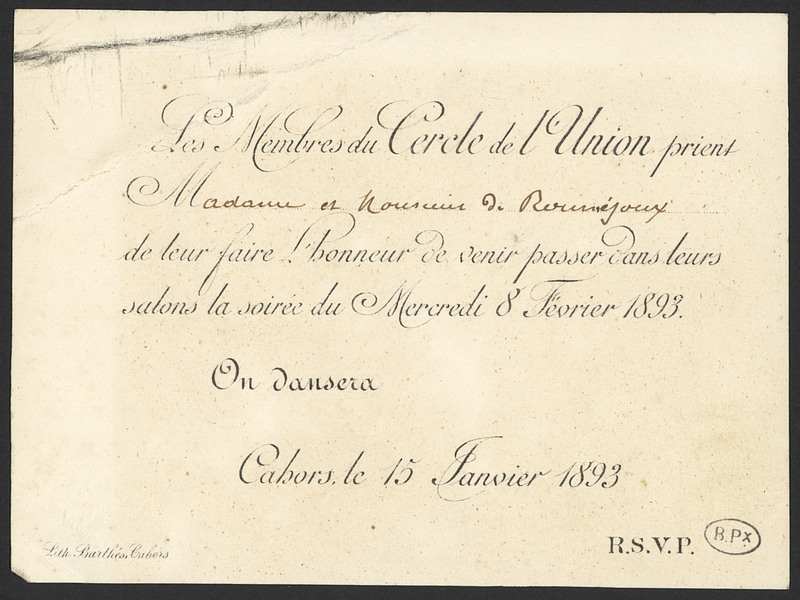 Les Membres du Cercle de l'Union prient
Madame et Monsieur de Roumejoux
de leur faire l'honneur de venir passer dans leurs
salons la soirée du Mercredi 8 Février 1893.
On dansera
Cahors, le 15 Janvier 1893
Lith. Barthés, Cahors
R.S.V.P. B.Px.